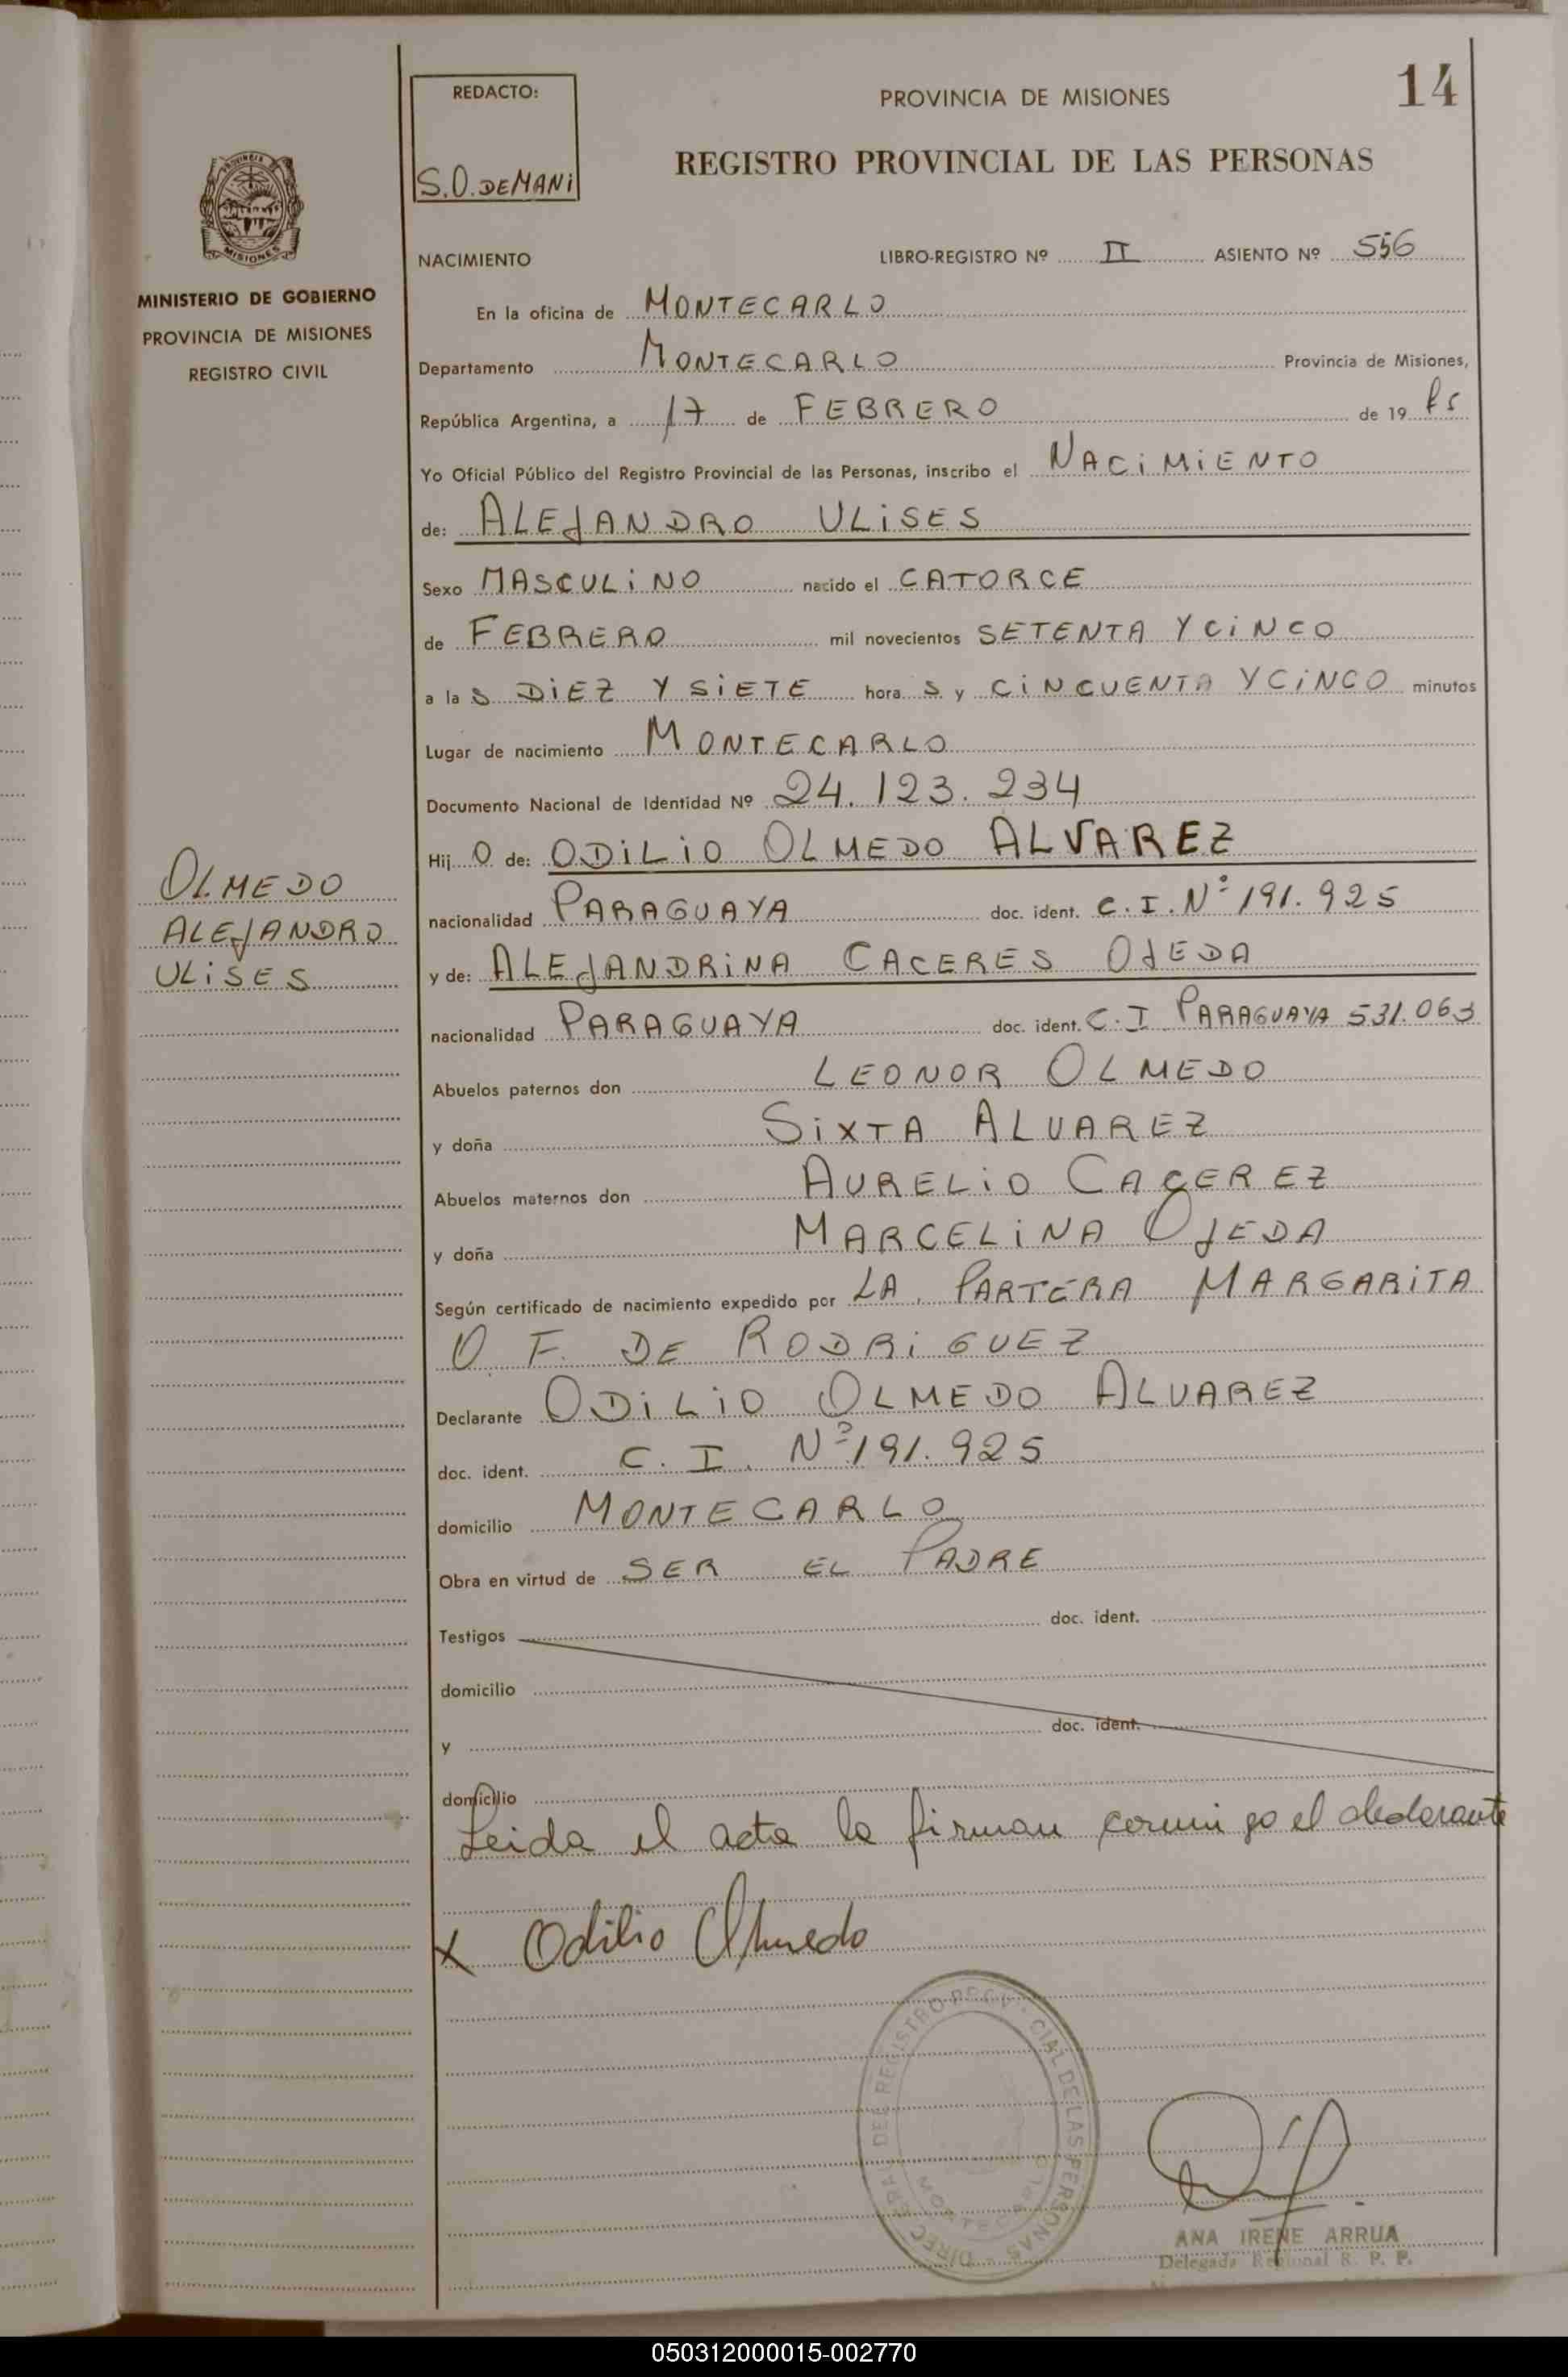 14
REDACTO:
S.O. DEMANI
PROVINCIA DE MISIONES
REGISTRO PROVINCIAL DE LAS PERSONAS
MISIONES
MINISTERIO DE GOBIERNO
PROVINCIA DE MISIONES
REGISTRO CIVIL
NACIMIENTO LIBRO-REGISTRO Nº II ASIENTO Nº 556
En la oficina de MONTECARLO
Departamento MONTECARLO Provincia de Misiones,
República Argentina, a 17 de FEBRERO de 19
Yo Oficial Público del Registro Provincial de las Personas, inscribo el NACIMIENTO
de: ALEJANDRO ULISES
Sexo MASCULINO nacido el CATORCE
de FEBRERO mil novecientos SETENTA Y CINCO
a la S DIEZ Y SIETE hora S y CINCUENTA Y CINCO minutos
Lugar de nacimiento MONTECARLO
Documento Nacional de Identidad Nº 24.123.234
Hij O de: ODILIO OLMEDO ALVAREZ
OLMEDO
ALEJANDRO
ULISES
nacionalidad PARAGUAYA doc. ident. C.I. Nº 191.925
y de: ALEJANDRINA CACERES OJEDA
nacionalidad PARAGUAYA doc. ident. C.I PARAGUAYA 531.063
Abuelos paternos don LEONOR OLMEDO
y doña SIXTA ALVAREZ
Abuelos maternos don AURELIO CACEREZ
y doña MARCELINA OJEDA
Según certificado de nacimiento expedido por LA PARTERA MARGARITA
O F. DE RODRIGUEZ
Declarante ODILIO OLMEDO ALVAREZ
doc. ident. C.I. Nº 191.925
domicilio MONTECARLO
Obra en virtud de SER EL PADRE
Testigos doc. ident.
domicilio
y doc. ident.
domicilio
Leida el acta la firman conmigo el declarante
X Odilio Olmedo
DIREC GRAL DEL REGISTRO PROVINCIAL DE LAS PERSONAS
MONTECARLO
ANA IRENE ARRUA
Delegada Regional R. P. P.
050312000015-002770